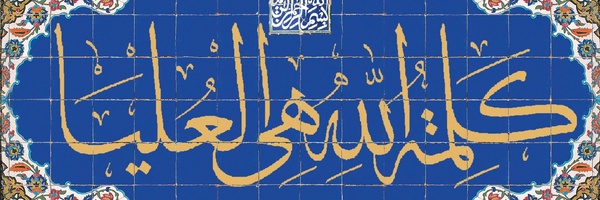 بسم الله الرحمن الرحيم
كَلِمَةُ اللّٰهِ هِيَ الْعُلْيَا